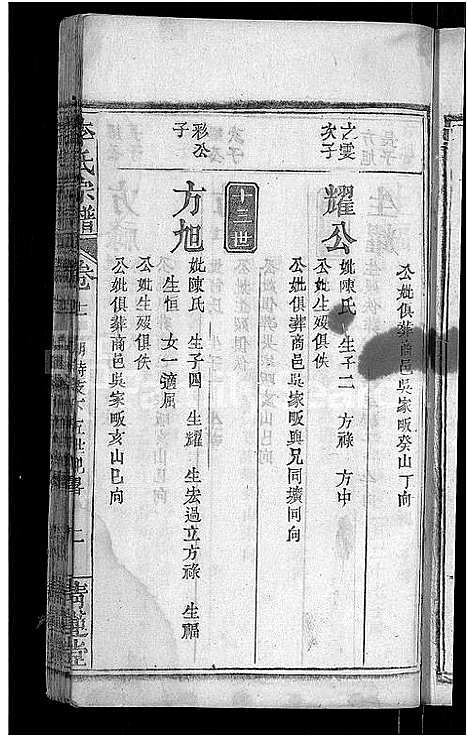 公妣俱葬商邑吳家畈癸山丁向
之雯
次子
耀公
妣陳氏 生子二 方祿 方中
公妣生歿俱佚
公妣俱葬商邑吳家畈與兄同墳同向
十三世
彩公
子
方旭
妣陳氏 生子四 生耀 生宏過立方祿 生福
生恒 女一適屈
公妣生歿俱佚
公妣俱葬商邑吳家畈亥山巳向
李氏宗譜
卷